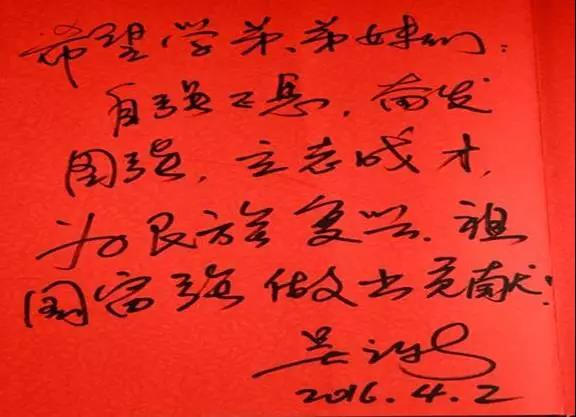 希望学弟、弟妹们:
自强不息,奋发
图强,立志成才,
为民族复兴、祖
国富强做出贡献!
2016.4.2